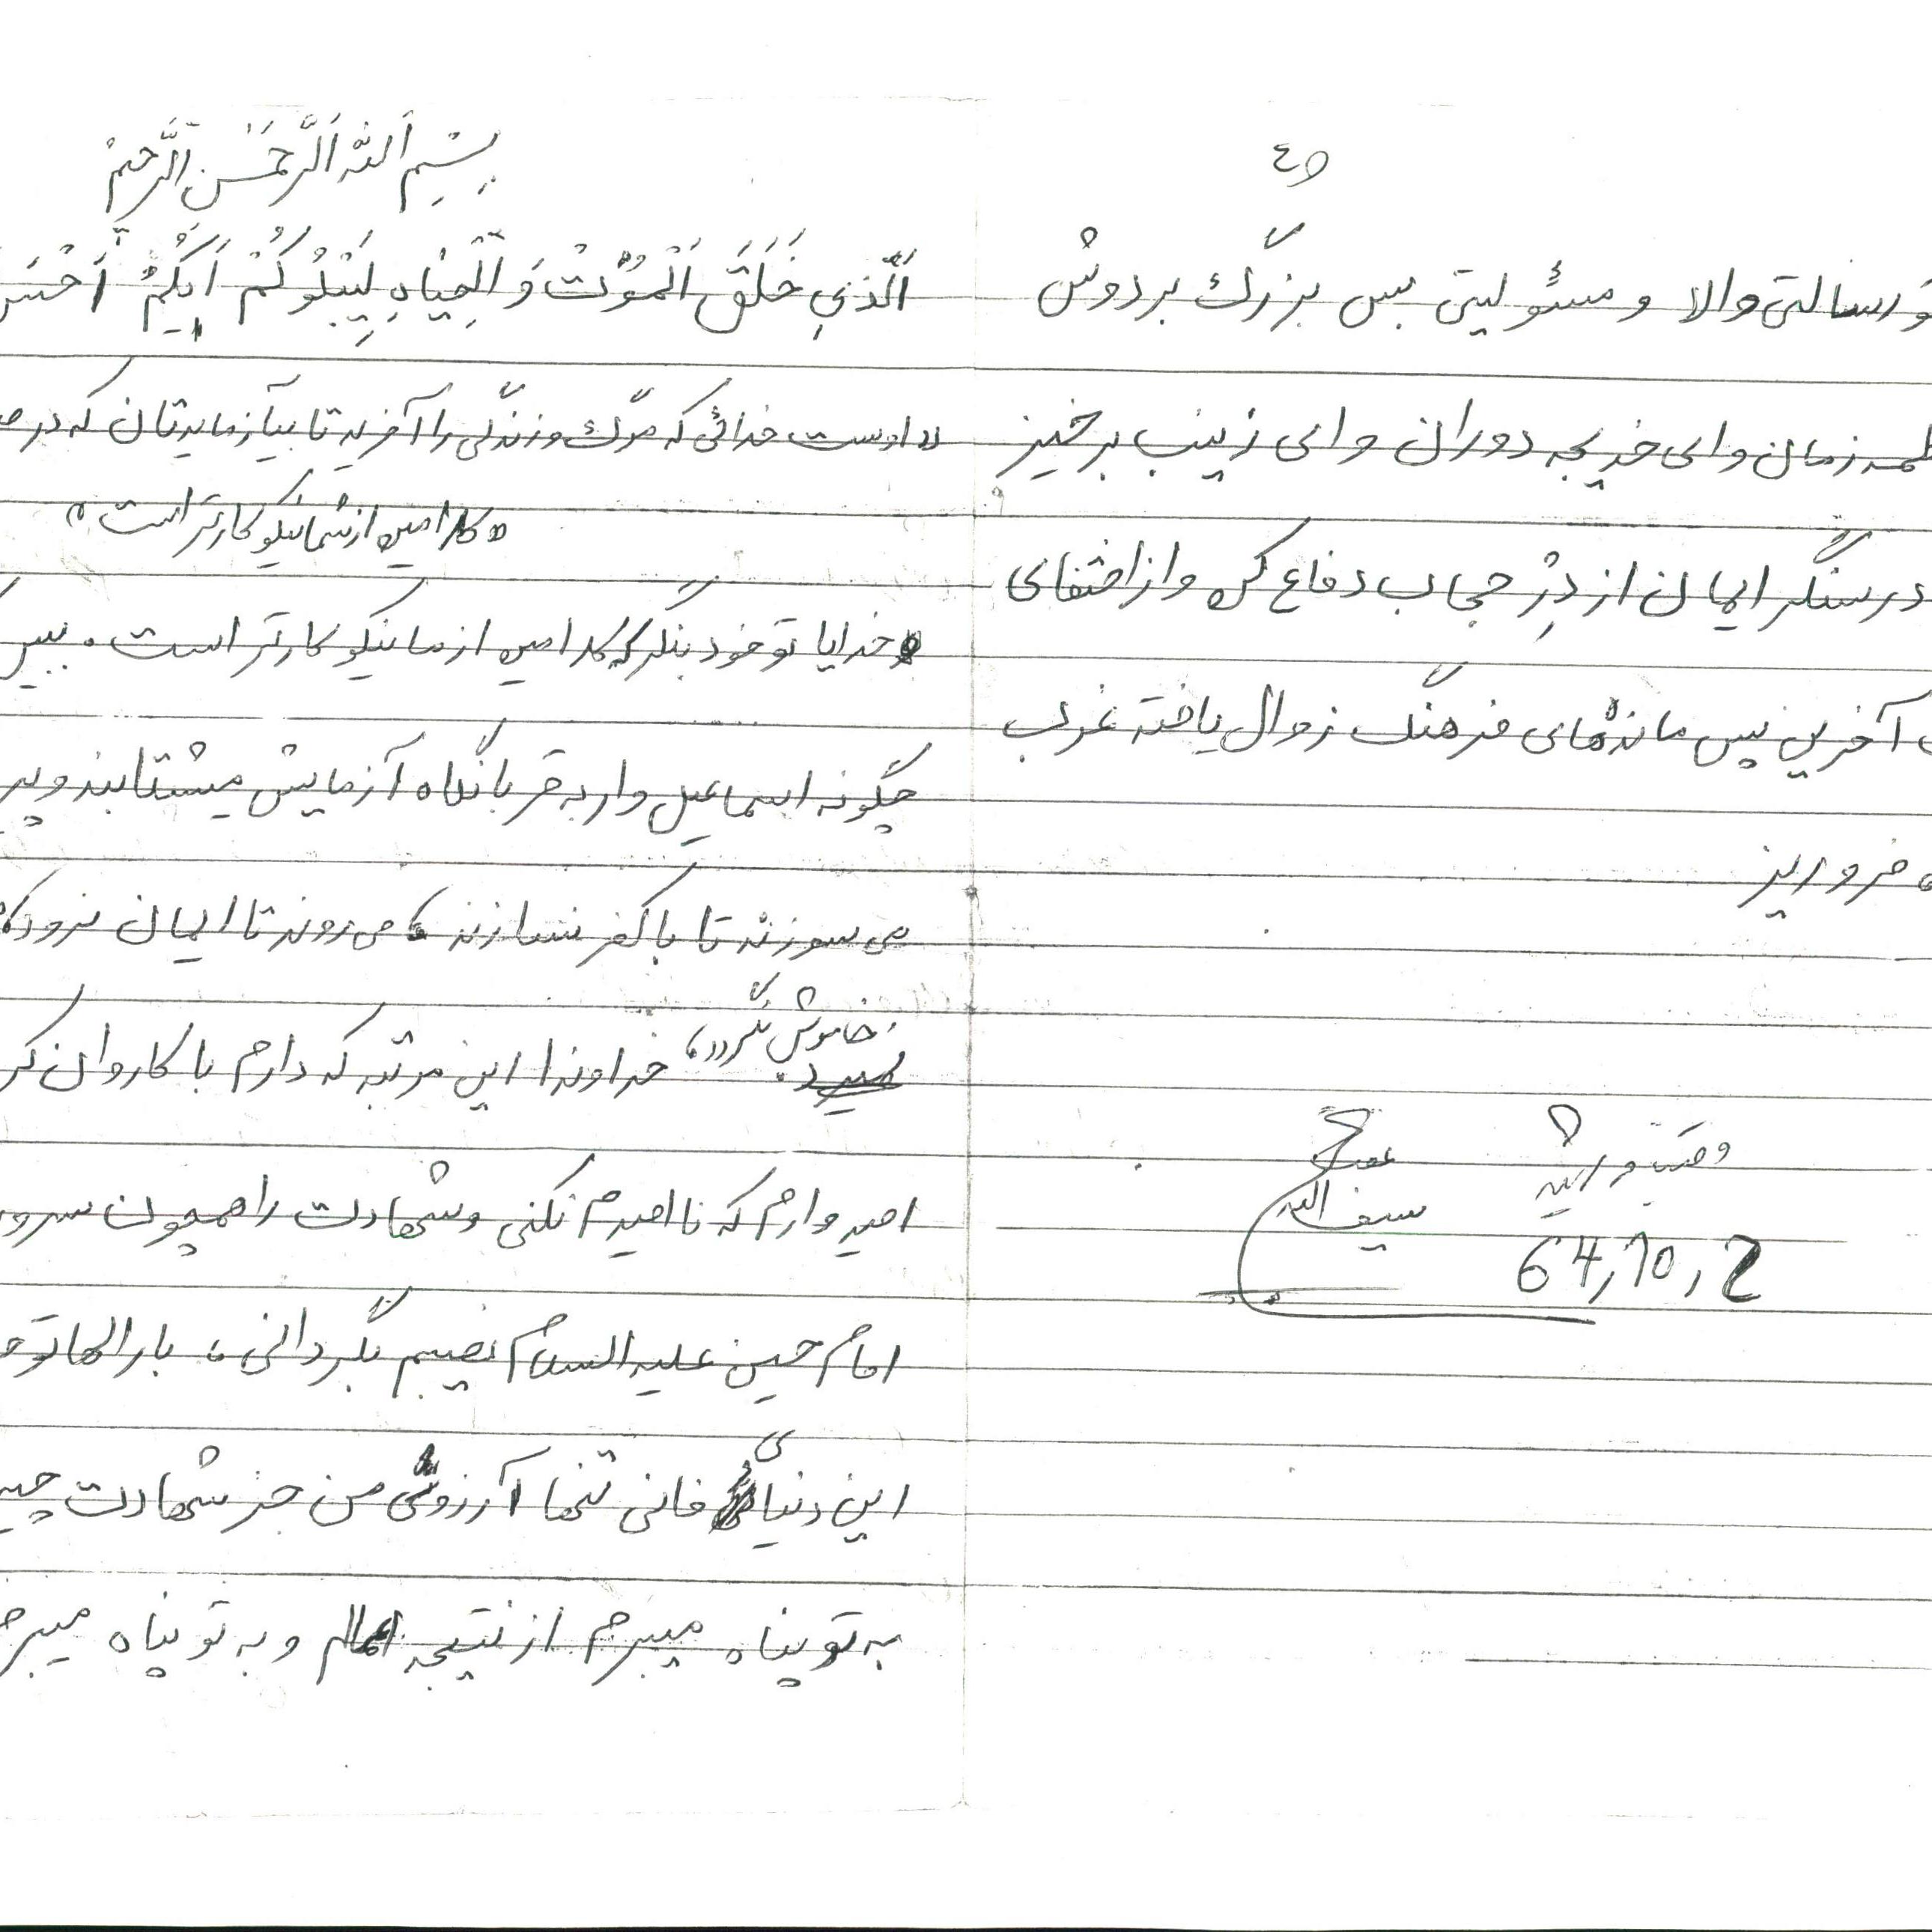 ٤٥
رسالتی والا و مسئولیتی بس بزرگ بر دوش
زمان و ای خدیجه دوران و ای زینب برخیز
در سنگر ایمان از دِژ حجاب دفاع کن و از
آخرین پس مانده‌های فرهنگ زوال یافته غرب
فرو ریز
سیف الله
64,10,2
بِسْمِ اَللهِ اَلرَّحْمَنِ اَلرَّحیمْ
اَلَّذی خَلَقَ اَلْمَوْتْ وَ اَلْحَیاهِ لِیَبْلُوَکُمْ اَیُّکُمْ اَحْسَن
«اوست خدائی که مرگ و زندگی را آفرید تا بیآزمایدتان که در
کدامین از شما نیکو کارتر است»
خدایا تو خود بنگر که کدامین از ما نیکو کارتر است. ببین
چگونه اسماعیل وار به قربانگاه آزمایش میشتابند و
می سوزند تا با کفر نسازند، می روند تا ایمان نرود
خاموش نگردد، خداوندا این مرتبه که دارم با کاروان
امیدوارم که ناامیدم نکنی و شهادت را همچون سرور
امام حسین علیه السلام نصیبم بگردانی، بارالها تو
این دنیای فانی تنها آرزوی من جز شهادت
به تو پناه میبرم از نتیجه اعمالم و به تو پناه میبرم